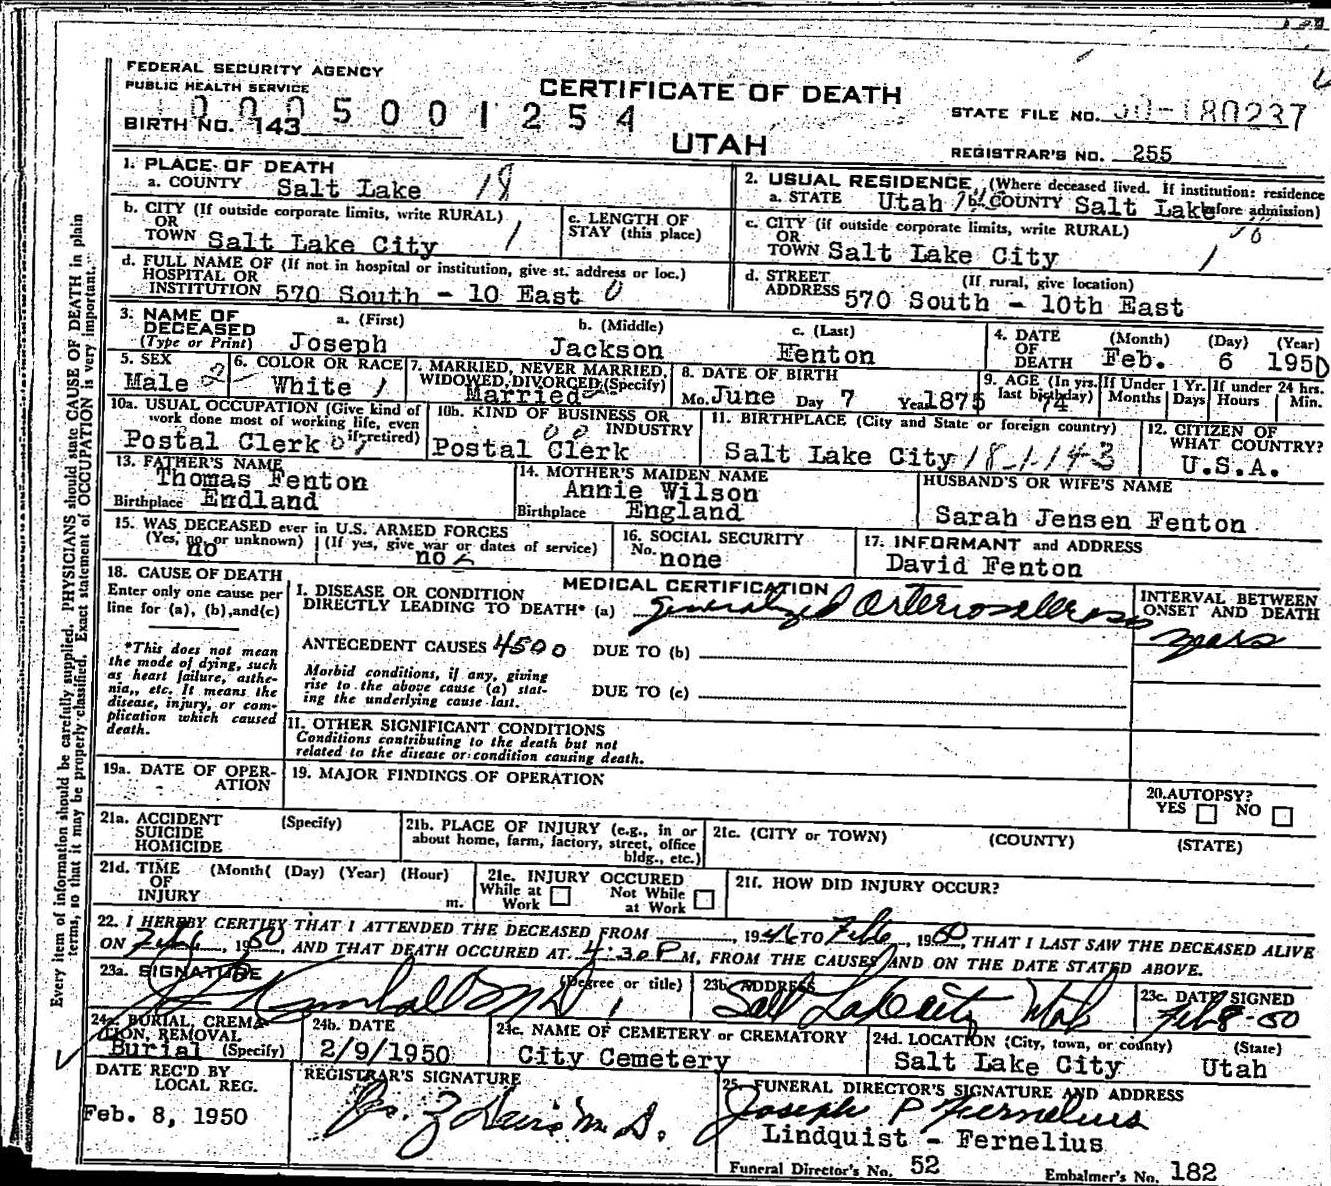 FEDERAL SECURITY AGENCY
PUBLIC HEALTH SERVICE
CERTIFICATE OF DEATH
STATE FILE NO. 50-180237
0005001254
BIRTH NO. 143
UTAH
REGISTRAR'S NO. 255
1. PLACE OF DEATH
a. COUNTY Salt Lake 18
2. USUAL RESIDENCE (Where deceased lived. If institution: residence before admission)
a. STATE Utah b. COUNTY Salt Lake
b. CITY (If outside corporate limits, write RURAL)
OR
TOWN Salt Lake City 1
c. LENGTH OF
STAY (this place)
c. CITY (if outside corporate limits, write RURAL)
OR
TOWN Salt Lake City 1
d. FULL NAME OF (If not in hospital or institution, give st. address or loc.)
HOSPITAL OR
INSTITUTION 570 South - 10 East 0
d. STREET (If rural, give location)
ADDRESS 570 South - 10th East
3. NAME OF
DECEASED
(Type or Print)
a. (First) b. (Middle) c. (Last)
Joseph Jackson Fenton
4. DATE (Month) (Day) (Year)
OF
DEATH Feb. 6 1950
5. SEX
Male 2
6. COLOR OR RACE
White 1
7. MARRIED, NEVER MARRIED,
WIDOWED, DIVORCED (Specify)
Married
8. DATE OF BIRTH
Mo. June Day 7 Year 1875
9. AGE (In yrs. last birthday) 74
If Under 1 Yr.
Months Days
If under 24 hrs.
Hours Min.
10a. USUAL OCCUPATION (Give kind of
work done most of working life, even
if retired)
Postal Clerk
10b. KIND OF BUSINESS OR
INDUSTRY
Postal Clerk
11. BIRTHPLACE (City and State or foreign country)
Salt Lake City 18-1-143
12. CITIZEN OF
WHAT COUNTRY?
U.S.A.
13. FATHER'S NAME
Thomas Fenton
Birthplace Endland
14. MOTHER'S MAIDEN NAME
Annie Wilson
Birthplace England
HUSBAND'S OR WIFE'S NAME
Sarah Jensen Fenton
15. WAS DECEASED ever in U.S. ARMED FORCES
(Yes, no, or unknown) (If yes, give war or dates of service)
no no
16. SOCIAL SECURITY
No. none
17. INFORMANT and ADDRESS
David Fenton
18. CAUSE OF DEATH
Enter only one cause per
line for (a), (b), and (c)
*This does not mean
the mode of dying, such
as heart failure, asthe-
nia,, etc. It means the
disease, injury, or com-
plication which caused
death.
MEDICAL CERTIFICATION
I. DISEASE OR CONDITION
DIRECTLY LEADING TO DEATH* (a) generalized Arteriosclerosis
INTERVAL BETWEEN
ONSET AND DEATH
years
ANTECEDENT CAUSES 4500 DUE TO (b)
Morbid conditions, if any, giving
rise to the above cause (a) stat-
ing the underlying cause last.
DUE TO (c)
II. OTHER SIGNIFICANT CONDITIONS
Conditions contributing to the death but not
related to the disease or condition causing death.
19a. DATE OF OPER-
ATION
19. MAJOR FINDINGS OF OPERATION
20. AUTOPSY?
YES NO
21a. ACCIDENT (Specify)
SUICIDE
HOMICIDE
21b. PLACE OF INJURY (e.g., in or
about home, farm, factory, street, office
bldg., etc.)
21c. (CITY or TOWN) (COUNTY) (STATE)
21d. TIME (Month( (Day) (Year) (Hour)
OF
INJURY m.
21e. INJURY OCCURED
While at Work Not While at Work
21f. HOW DID INJURY OCCUR?
22. I HEREBY CERTIFY THAT I ATTENDED THE DECEASED FROM 1946 TO Feb 6, 1950, THAT I LAST SAW THE DECEASED ALIVE
ON Feb 6, 1950, AND THAT DEATH OCCURED AT 4:30 P M, FROM THE CAUSES AND ON THE DATE STATED ABOVE.
23a. SIGNATURE (Degree or title)
23b. ADDRESS
Salt Lake City Utah
23c. DATE SIGNED
Feb 8-50
24a. BURIAL, CREMA-
TION, REMOVAL
Burial (Specify)
24b. DATE
2/9/1950
24c. NAME OF CEMETERY OR CREMATORY
City Cemetery
24d. LOCATION (City, town, or county) (State)
Salt Lake City Utah
DATE REC'D BY
LOCAL REG.
Feb. 8, 1950
REGISTRAR'S SIGNATURE
M.D.
25. FUNERAL DIRECTOR'S SIGNATURE AND ADDRESS
Joseph P Fernelius
Lindquist - Fernelius
Funeral Director's No. 52 Embalmer's No. 182
Every item of information should be carefully supplied. PHYSICIANS should state CAUSE OF DEATH in plain
terms, so that it may be properly classified. Exact statement of OCCUPATION is very important.